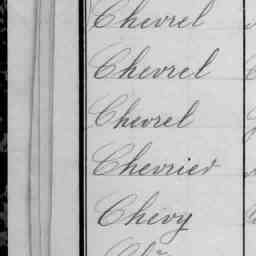 Chevrel
Chevrel
Chevrel
Chevrier
Chevy